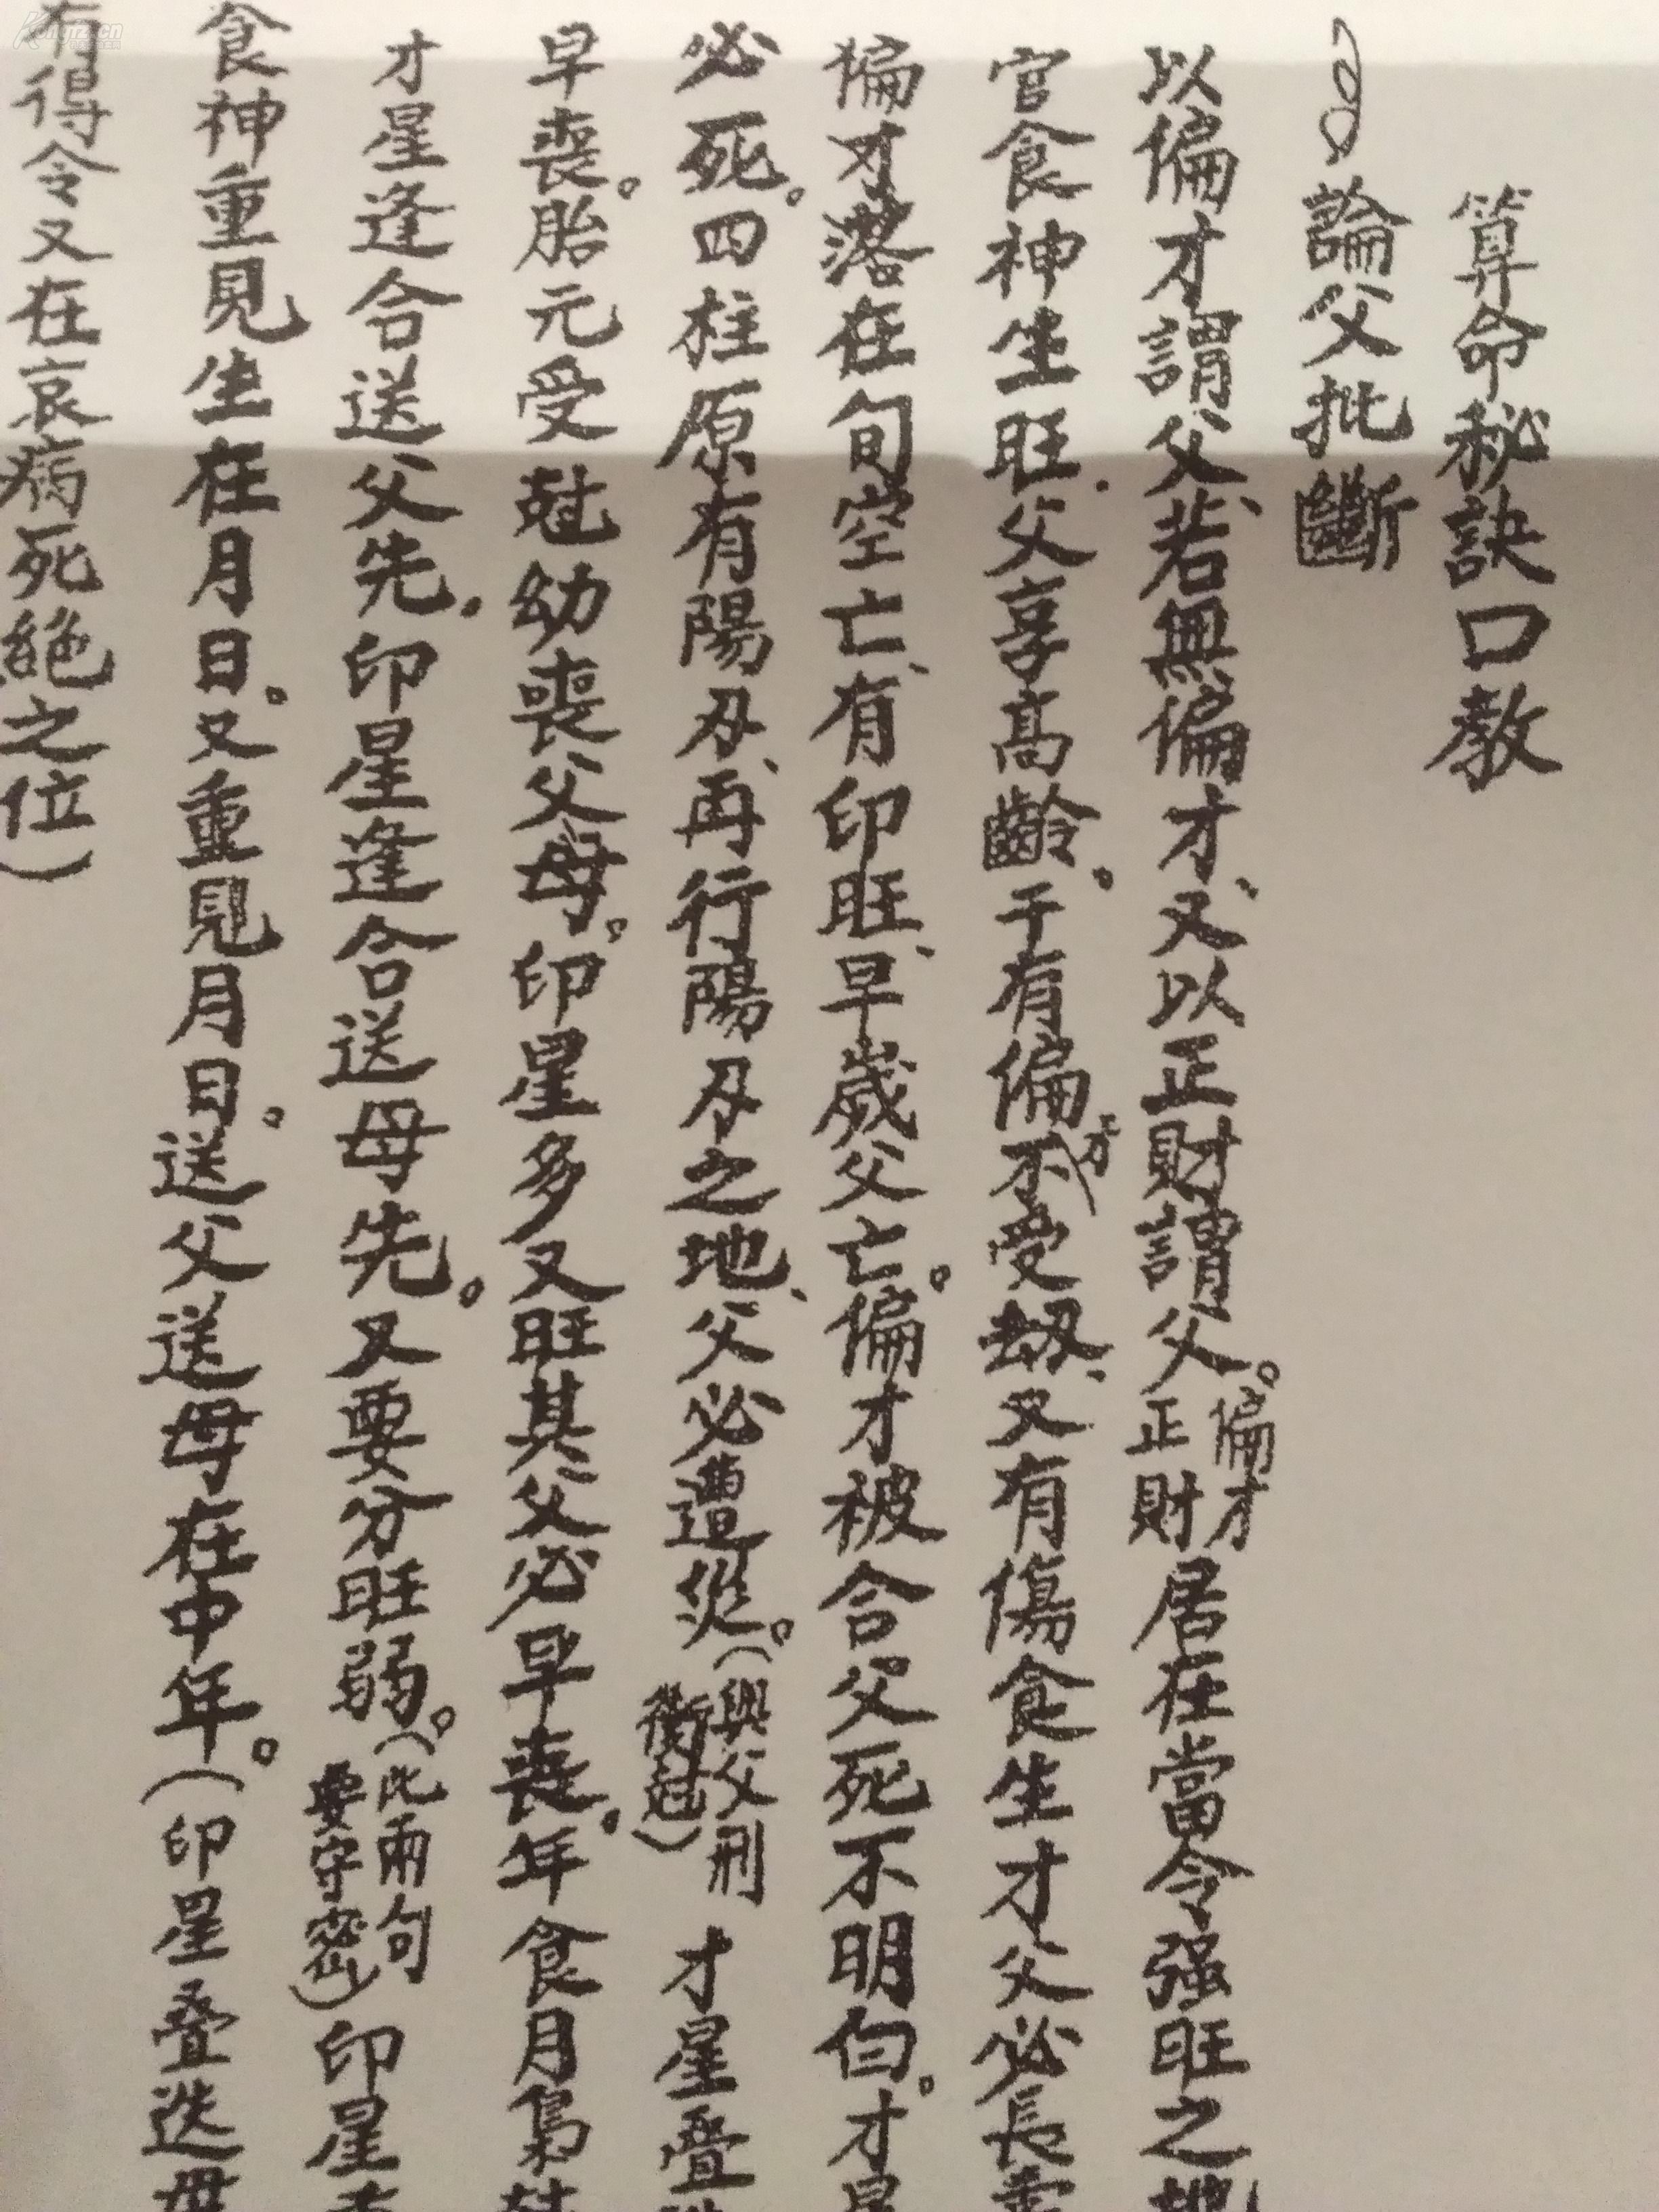 算命秘訣口教
論父批斷
以偏才謂父、若無偏才、又以正財謂父。偏才正財居在當令强旺之地
官食神生旺.父享高齡。干有偏才不受刼、又有傷食生才父必長壽
偏才落在旬空亡、有印旺、早歲父亡。偏才被合父死不明白。才星
必死。四柱原有陽刃、再行陽刃之地、父必遭災。（與父刑衝尅）才星疊
早喪。胎元受尅幼喪父母。印星多又旺其父必早喪。年食月梟尅
才星逢合送父先。印星逢合送母先。又要分旺弱。（此兩句要守密）印星
食神重見生在月日。又重見月日。送父送母在中年。（印星叠迭母
有得令又在衰病死絕之位）